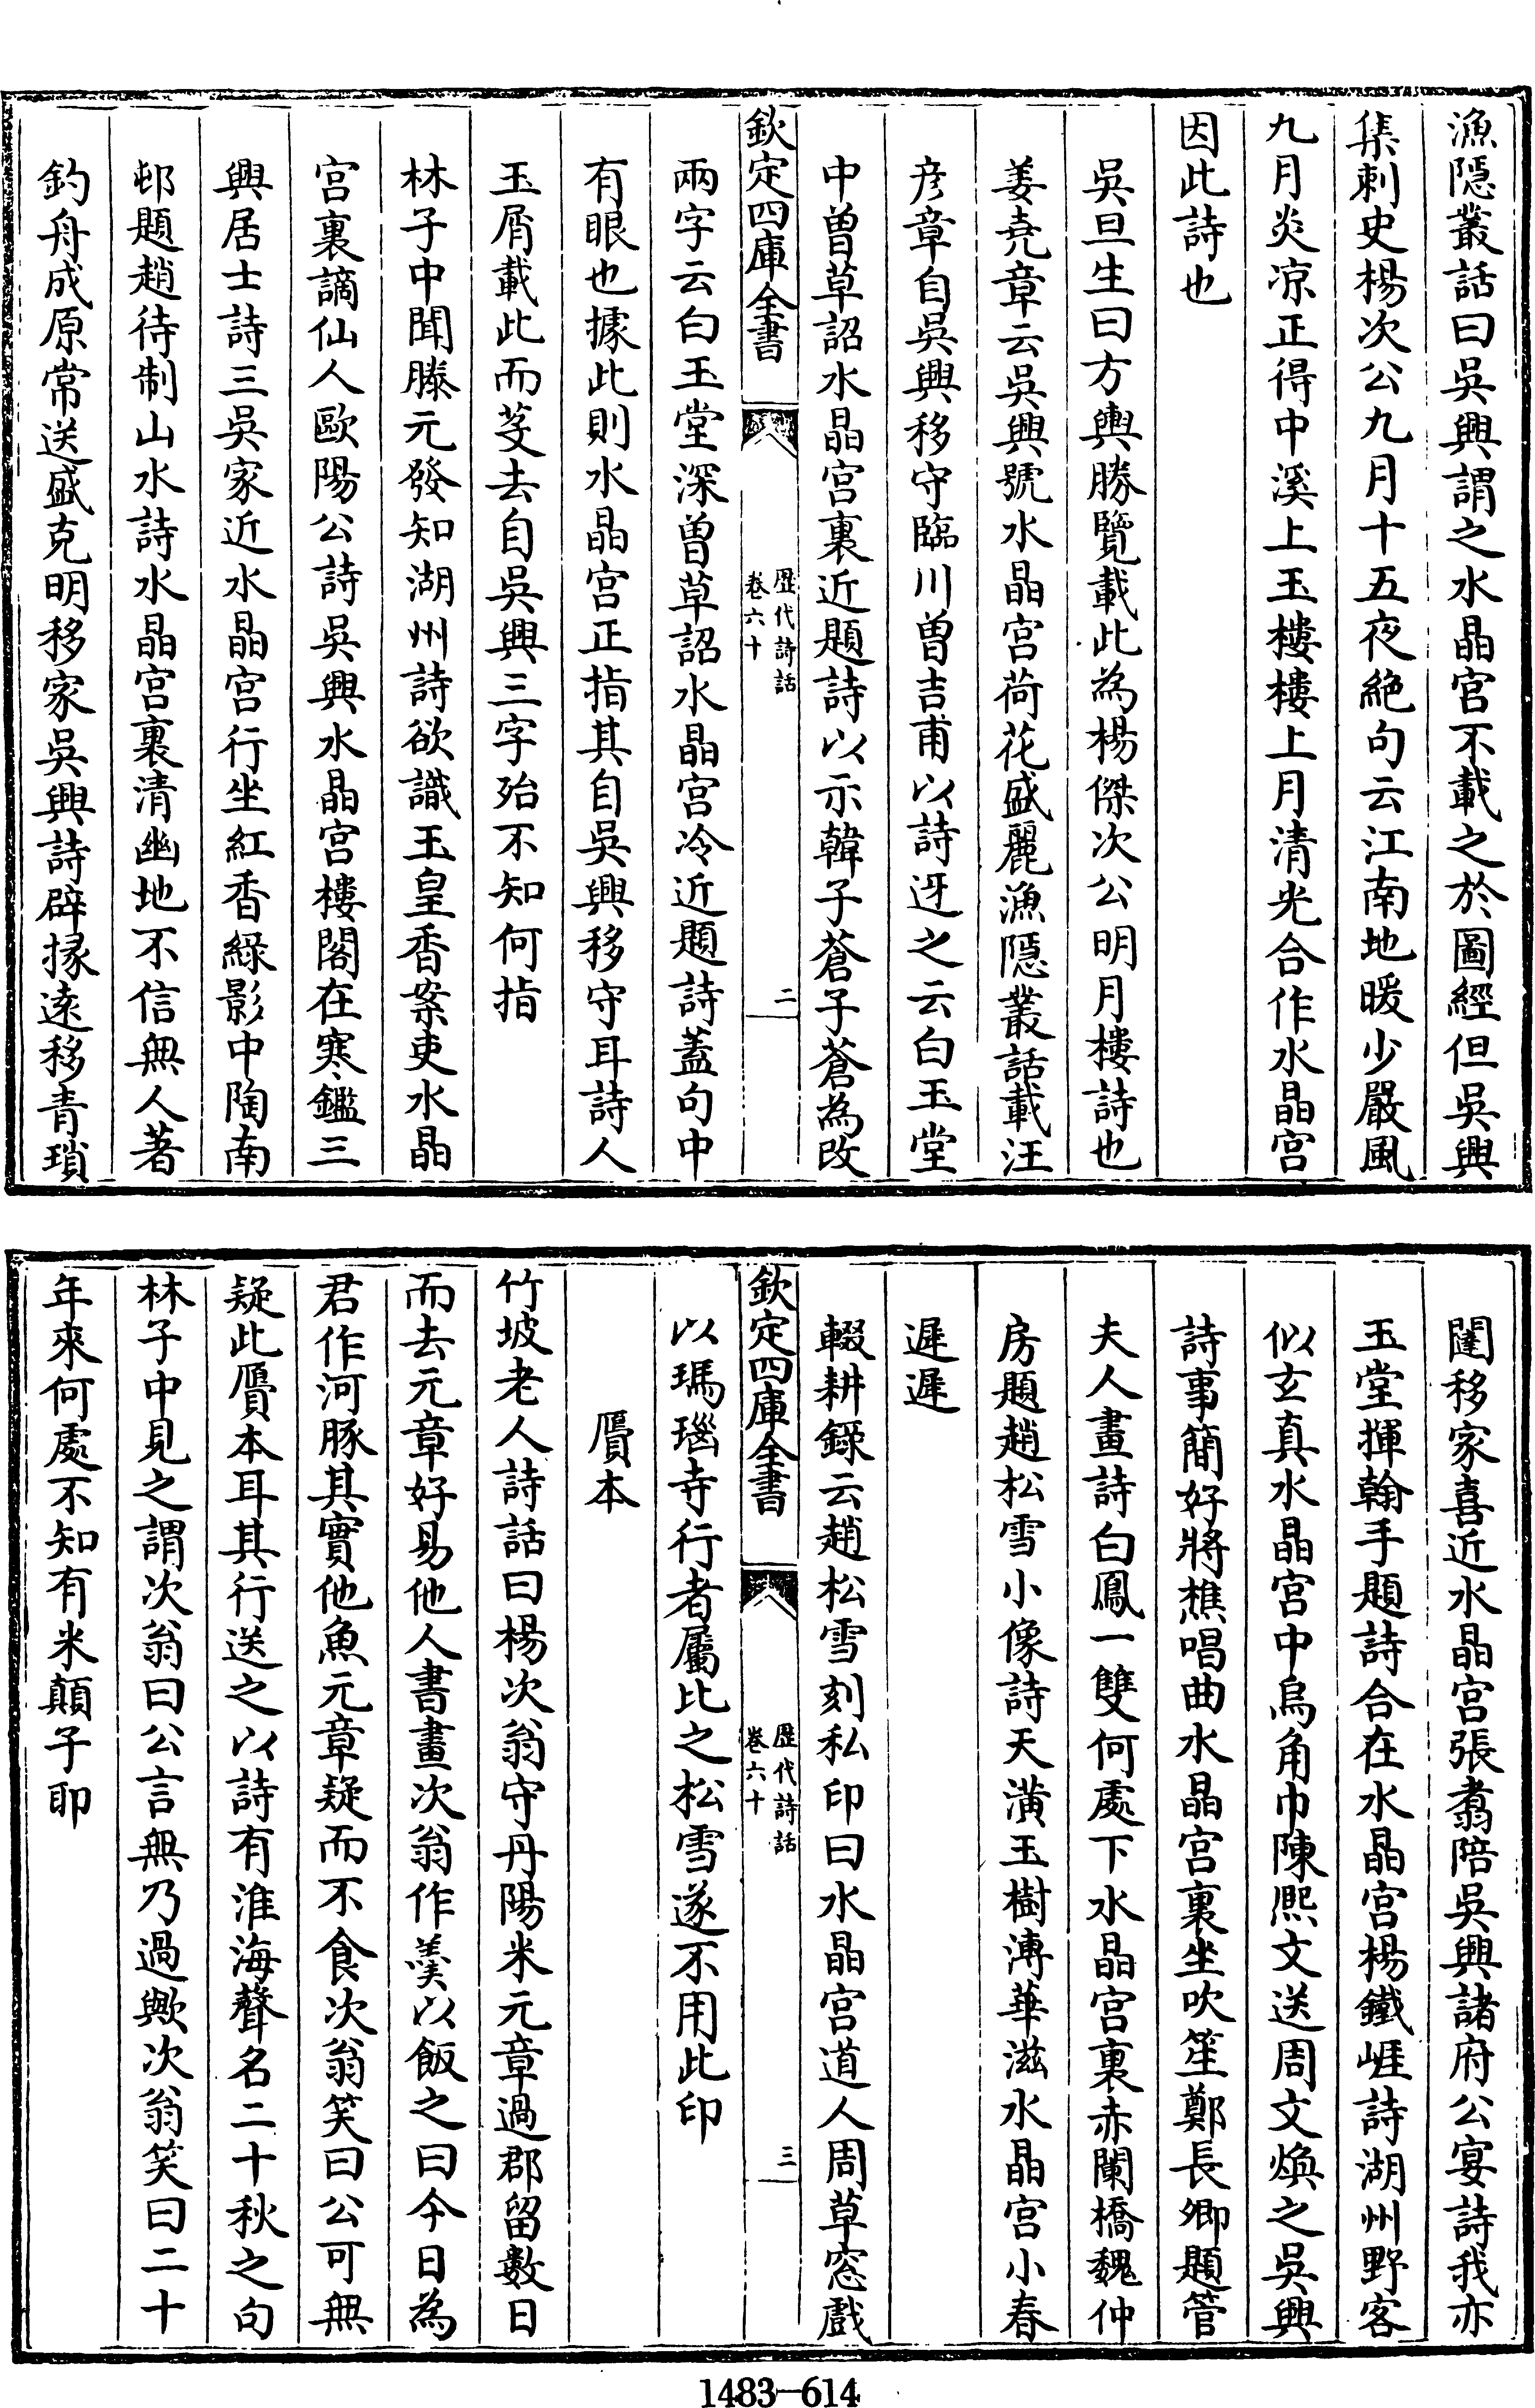 漁隱叢話曰吳興謂之水晶宮不載之於圖經但吳興
集刺史楊次公九月十五夜絶句云江南地暖少嚴風
九月炎凉正得中溪上玉樓樓上月清光合作水晶宮
因此詩也
吳旦生曰方輿勝覽載此為楊傑次公明月樓詩也
姜堯章云吳興號水晶宮荷花盛麗漁隱叢話載汪
彦章自吳興移守臨川曾吉甫以詩迓之云白玉堂
中曾草詔水晶宮裏近題詩以示韓子蒼子蒼為改
欽定四庫全書
歴代詩話
卷六十
二
兩字云白玉堂深曾草詔水晶宮冷近題詩蓋句中
有眼也據此則水晶宮正指其自吳興移守耳詩人
玉屑載此而芟去自吳興三字殆不知何指
林子中聞滕元發知湖州詩欲識玉皇香案吏水晶
宮裏謫仙人歐陽公詩吳興水晶宮樓閣在寒鑑三
興居士詩三吳家近水晶宮行坐紅香緑影中陶南
邨題趙待制山水詩水晶宮裏清幽地不信無人著
釣舟成原常送盛克明移家吳興詩辟掾逺移青瑣
闥移家喜近水晶宮張翥陪吳興諸府公宴詩我亦
玉堂揮翰手題詩合在水晶宮楊鐵崖詩湖州野客
似玄真水晶宮中烏角巾陳熙文送周文煥之吳興
詩事簡好將樵唱曲水晶宮裏坐吹笙鄭長卿題管
夫人畫詩白鳳一雙何處下水晶宮裏赤闌橋魏仲
房題趙松雪小像詩天潢玉樹溥華滋水晶宮小春
遲遲
輟耕錄云趙松雪刻私印曰水晶宮道人周草窓戲
欽定四庫全書
歴代詩話
卷六十
三
以瑪瑙寺行者屬比之松雪遂不用此印
贋本
竹坡老人詩話曰楊次翁守丹陽米元章過郡留數日
而去元章好易他人書畫次翁作羹以飯之曰今日為
君作河豚其實他魚元章疑而不食次翁笑曰公可無
疑此贋本耳其行送之以詩有淮海聲名二十秋之句
林子中見之謂次翁曰公言無乃過歟次翁笑曰二十
年來何處不知有米顛子耶
1483—614